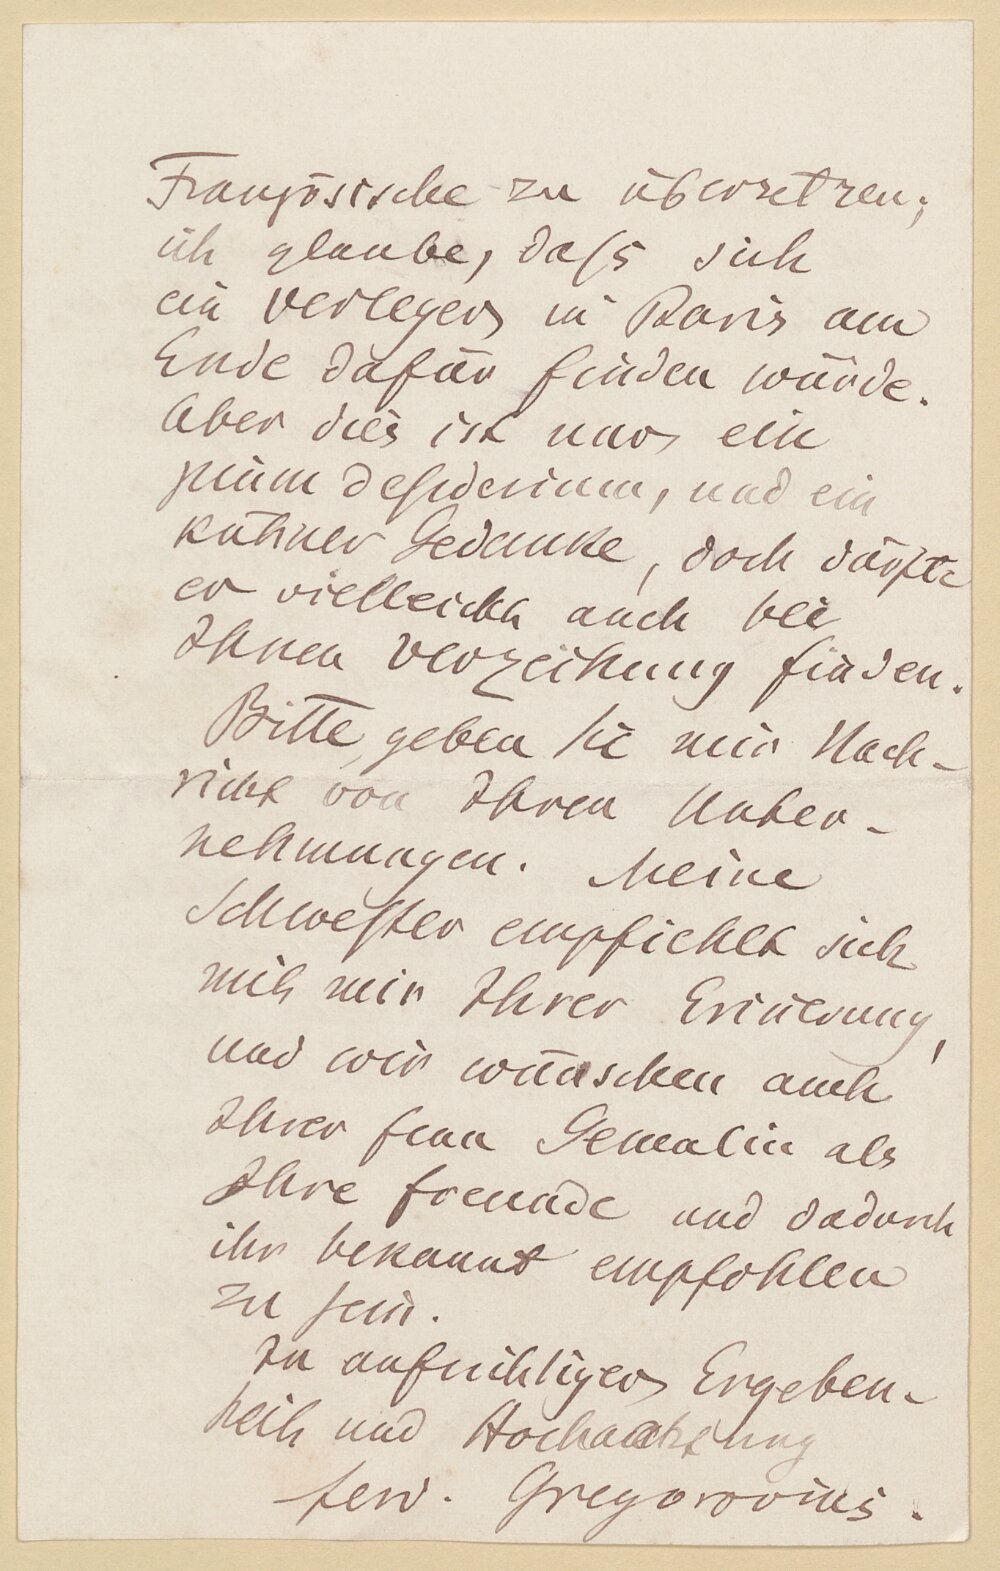 Französische zu übersetzen;
ich glaube, daſs sich
ein Verleger in Paris am
Ende dafür finden würde.
Aber dies ist nur ein
pium desiderium, und ein
kühner Gedanke, doch dürfte
er vielleicht auch bei
Ihnen Verzeihung finden.
Bitte, geben Sie mir Nach-
richt von Ihren Unter-
nehmungen. Meine
Schwester empfiehlt sich
mit mir Ihrer Erinerung,
und wir wünschen auch
Ihrer Frau Gemalin als
Ihre Freunde und dadurch
ihr bekannt empfohlen
zu sein.
In aufrichtiger Ergeben-
heit und Hochachtung
Ferd. Gregorovius.